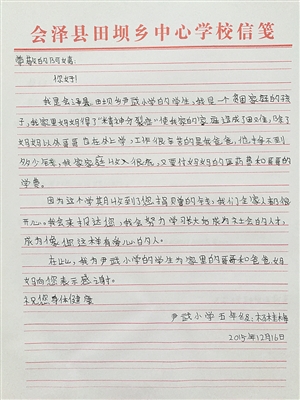 会泽县田坝乡中心学校信笺
尊敬的阿姨:
您好!
我是会泽县田坝乡尹武小学的学生,我是一个贫困家庭的孩
子,我家里妈妈得了"精神分裂症"使我家的家庭造成了困难,除了
妈妈以外哥哥也在外上学,工作很辛苦的是我爸爸,也挣不到
多少年钱,我家家庭收入很低,又要付妈妈的医药费和哥哥的
学费。
因为这个学期收到了您捐赠的年钱,我们全家人都很
开心。我会来报达您,我会努力学习长大给成为社会的人才,
成为像您这样有爱心的人。
在此,我为尹武小学的学生为家里的哥哥和爸爸、妈
妈向您表示感谢。
祝您身体健康
尹武小学五年级:
2015年12月16日